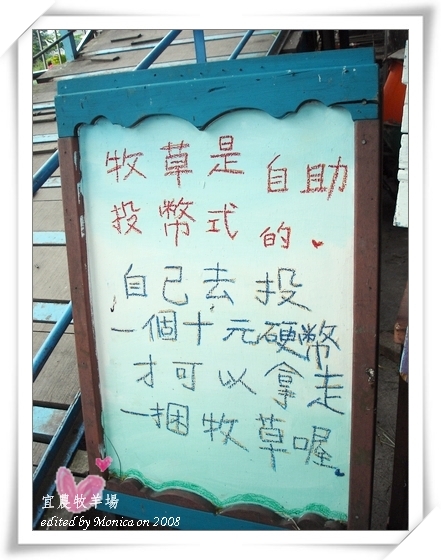 牧草是 自助
投幣式 的
自己去投
一個十元硬幣
才可以拿走
一捆牧草喔
宜農牧羊場
edited by Monica on 2008